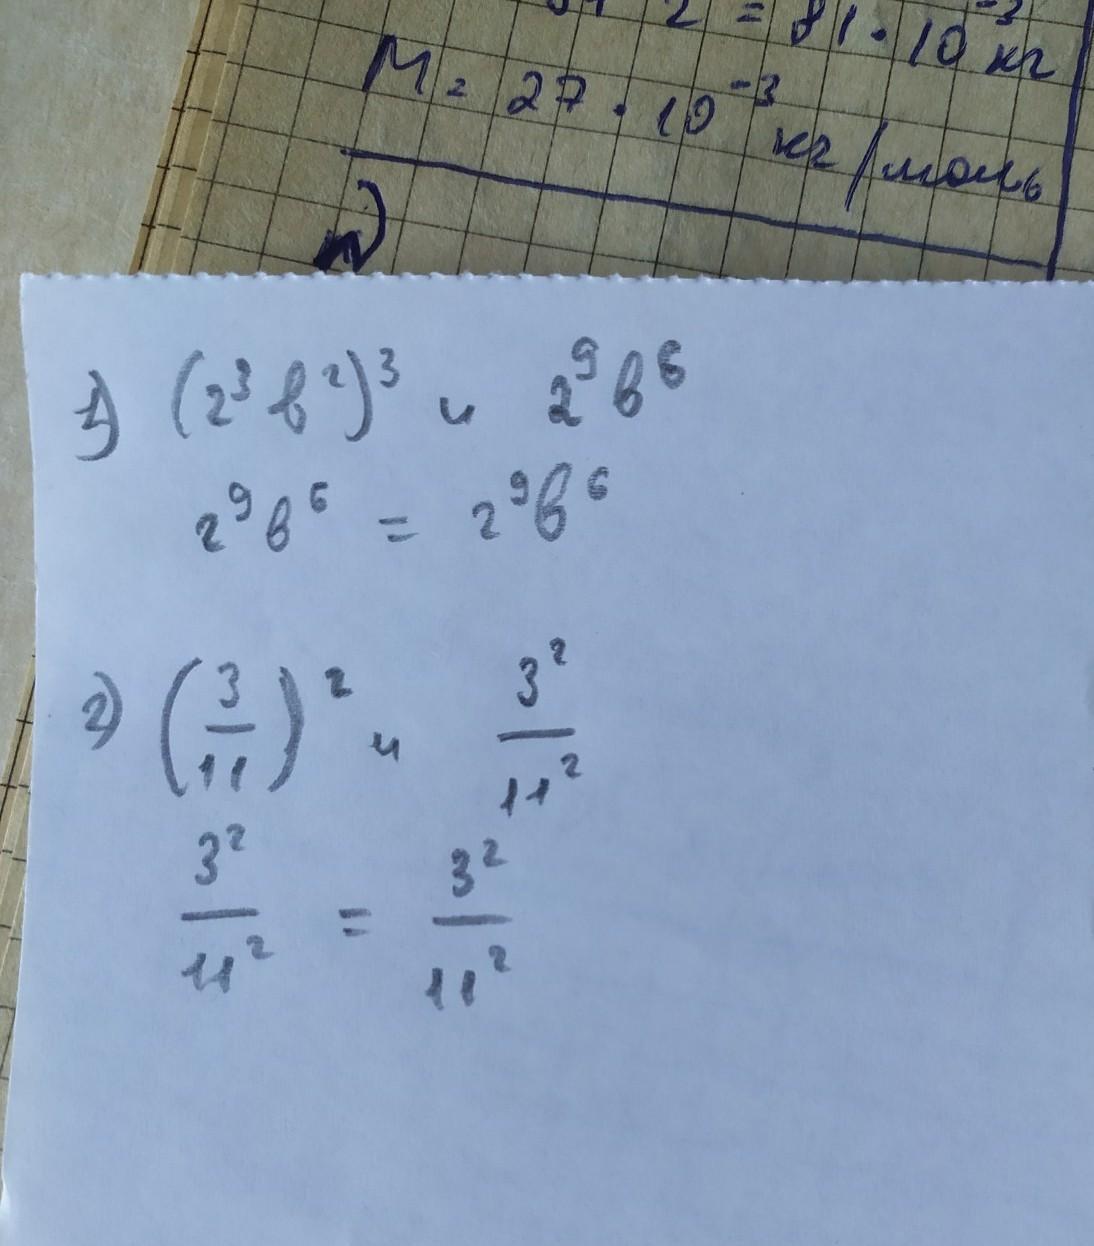 2 = 81 · 10⁻³ кг
M = 27 · 10⁻³ кг/моль
1) (2³ b²)³ и 2⁹ b⁶
2⁹ b⁶ = 2⁹ b⁶
2) (3/11)² и 3²/11²
3²/11² = 3²/11²